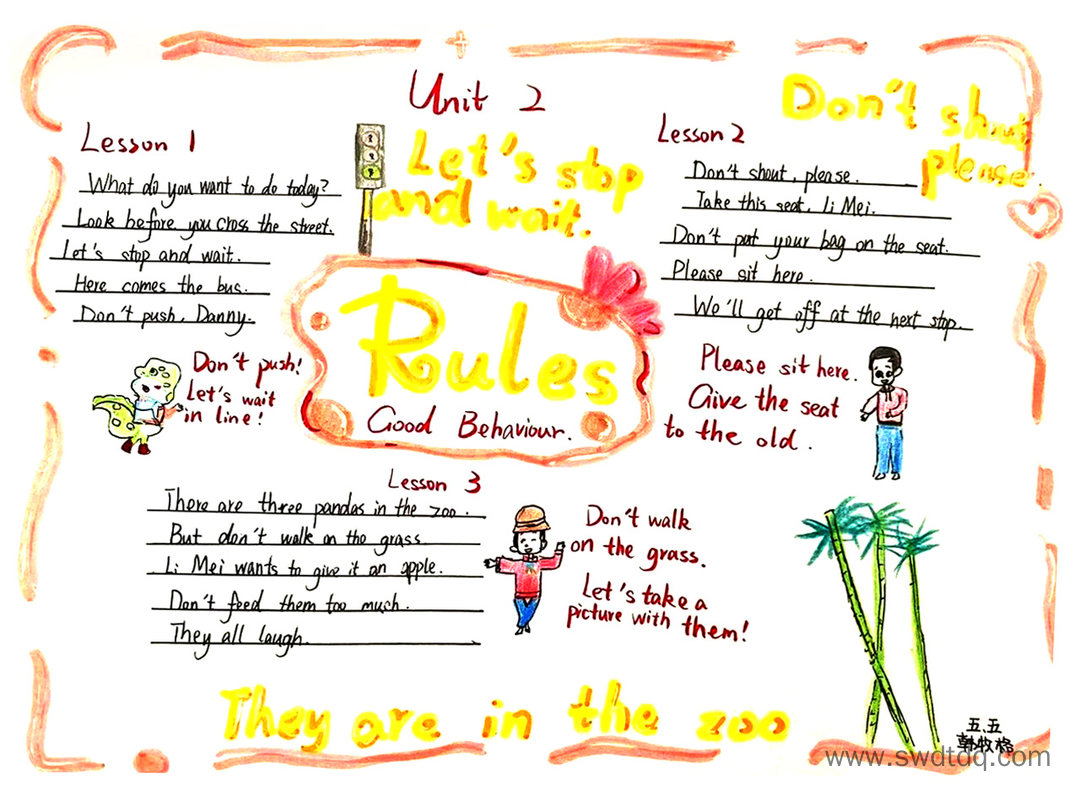 Unit 2
Let's stop
and wait.
Don't shout,
please.
Lesson 1
What do you want to do today?
Look before you cross the street.
Let's stop and wait.
Here comes the bus.
Don't push, Danny.
Lesson 2
Don't shout, please.
Take this seat, Li Mei.
Don't put your bag on the seat.
Please sit here.
We'll get off at the next stop.
Rules
Good Behaviour.
Don't push!
Let's wait
in line!
Please sit here.
Give the seat
to the old.
Lesson 3
There are three pandas in the zoo.
But don't walk on the grass.
Li Mei wants to give it an apple.
Don't feed them too much.
They all laugh.
Don't walk
on the grass.
Let's take a
picture with them!
They are in the zoo
五.五
韩牧格
www.swdtdq.com